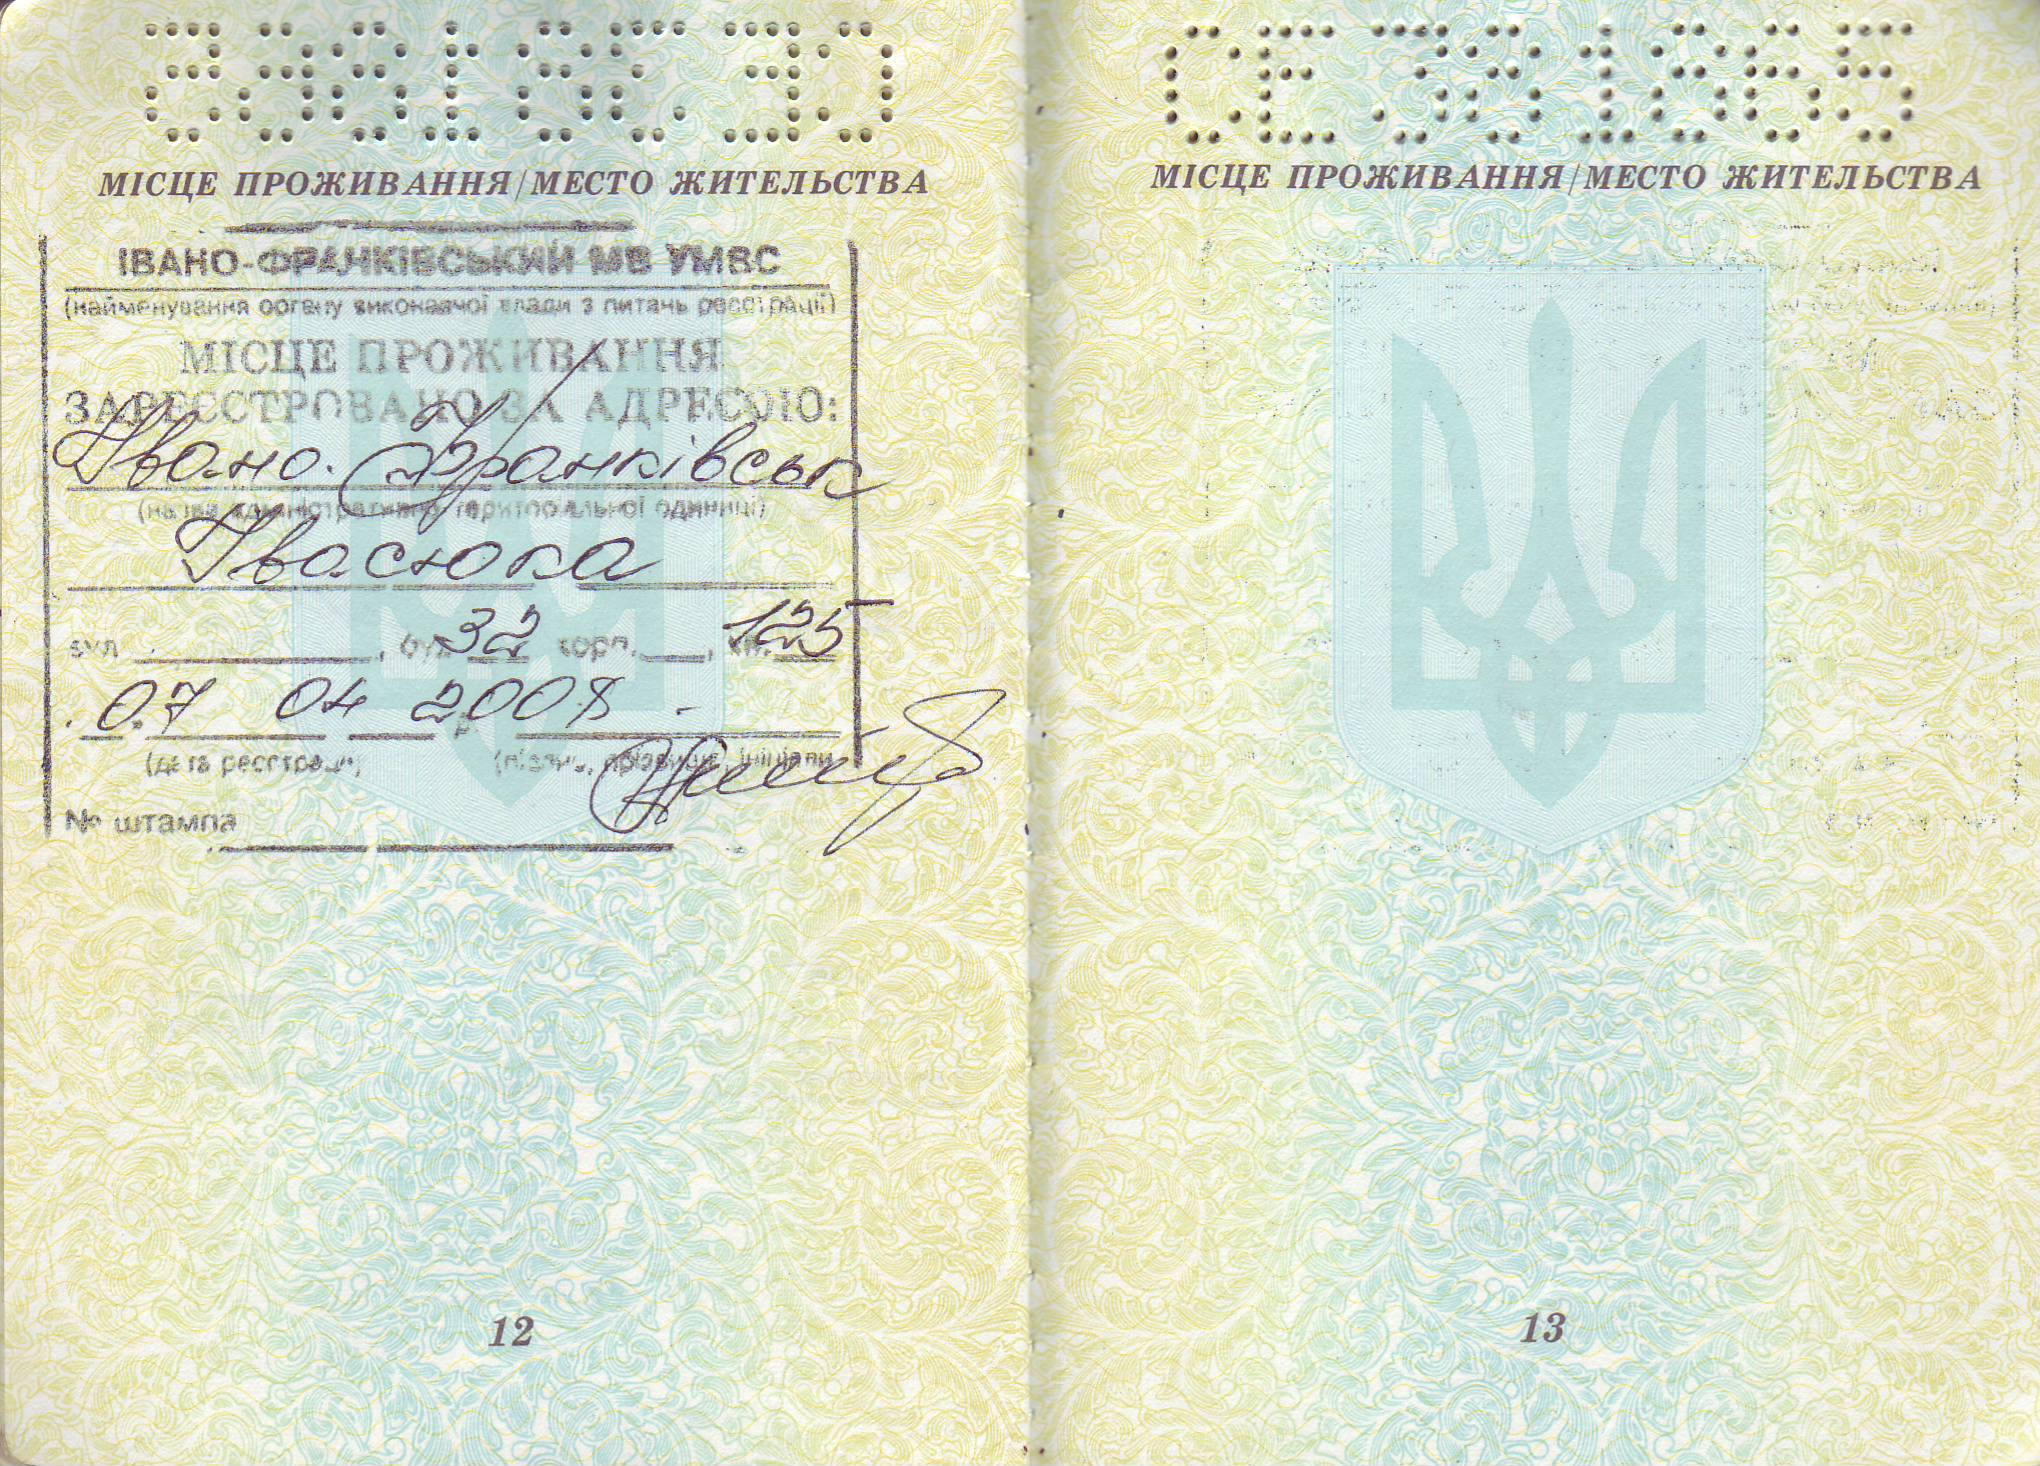 МІСЦЕ ПРОЖИВАННЯ/МЕСТО ЖИТЕЛЬСТВА
ІВАНО-ФРАНКІВСЬКИЙ МВ УМВС
(найменування органу виконавчої влади з питань реєстрації)
МІСЦЕ ПРОЖИВАННЯ
ЗАРЕЄСТРОВАНО ЗА АДРЕСОЮ:
Івано-Франківськ
(назва адміністративно-територіальної одиниці)
Івасюка
вул. , буд. 32 корп. , кв. 125
07 04 2008 р.
(дата реєстрації) (підпис, прізвище, ініціали
№ штампа
12
СЕ 381865
МІСЦЕ ПРОЖИВАННЯ/МЕСТО ЖИТЕЛЬСТВА
13